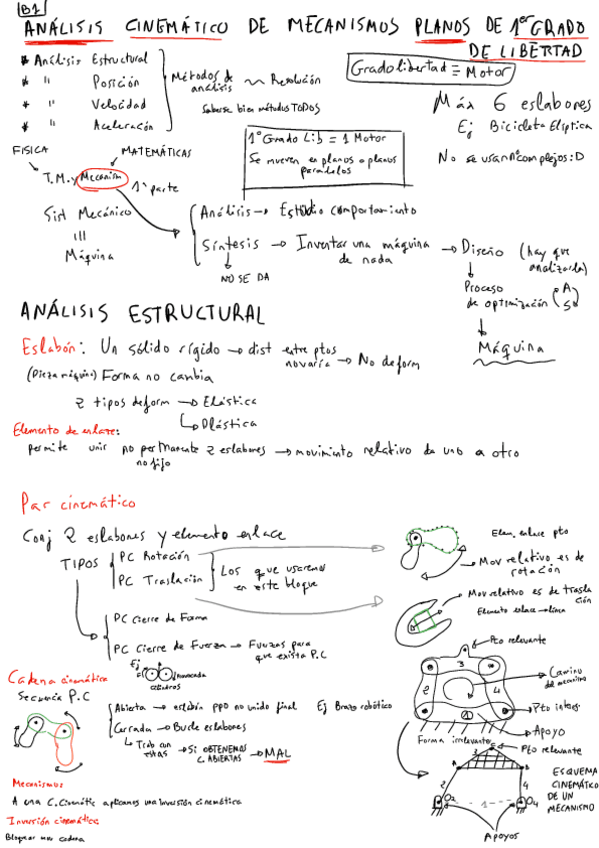 B1
ANÁLISIS CINEMÁTICO DE MECANISMOS PLANOS DE 1er GRADO
DE LIBERTAD
* Análisis Estructural
* " Posición
* " Velocidad
* " Aceleración
Métodos de análisis ~ Resolución
Saberse bien métodos TODOS
Grado libertad ≡ Motor
Máx 6 eslabores
Ej Bicicleta Elíptica
No se usan nº complejos :D
1º Grado Lib = 1 Motor
Se mueven en planos o planos
paralelos
FISICA
MATEMÁTICAS
T.M. y Mecanism
1ª parte
Sist Mecánico
III
Máquina
Análisis → Estudio comportamiento
Síntesis → Inventar una máquina
de nada
→ Diseño (hay que
analizarla)
NO SE DA
Proceso
de optimización
A
S
Máquina
ANÁLISIS ESTRUCTURAL
Eslabón: Un sólido rígido → dist entre ptos
no varía → No deform
(Pieza máquina) Forma no cambia
2 tipos deform → Elástica
Plástica
Elemento de enlace:
permite unir no permanente 2 eslabones → movimiento relativo de uno a otro
no fijo
Par cinemático
Conj 2 eslabones y elemento enlace
TIPOS
PC Rotación
PC Traslación
Los que usaremos
en este bloque
Elem. enlace pto
Mov relativo es de
rotación
Mov relativo es de trasla
ción
Elemento enlace → línea
PC cierre de Forma
PC cierre de Fuerza → Fuerzas para
que exista P.C
Ej
cilindros
Cadena cinemática
Secuencia P.C
Abierta → eslabón ppo no unido final Ej Brazo robótico
Cerrada → Bucle eslabones
Trab con
estas → Si OBTENEMOS
C. ABIERTAS → MAL
Pto relevante
3
2
4
1
Camino
del mecanismo
Pto interes
Apoyo
Forma irrelevante
Pto relevante
A
B
3
2
4
O2
1
O4
Apoyos
ESQUEMA
CINEMÁTICO
DE UN
MECANISMO
Mecanismos
A una C. Cinemátic aplicamos una inversión cinemática
Inversión cinemática
Bloquear una cadena